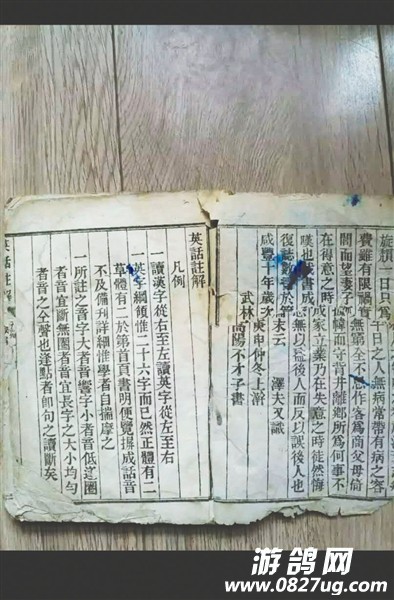 一日只為千日之人無病常帶有病之容
費雖有限禍實無窮第全不念作客為商父母倚
閭而望妻子幃而守背井離鄉所為何事不
在得意之時成家立業乃在失意之時徒然悔
嘆也茲書成無以益後人而反以誤後人也
復誌數於篇末云 澤夫又識
咸豐十年歲次庚申仲冬上澣
武林高陽不才子書
英話註解
凡例
一讀漢字從右至左讀英字從左至右
一英字綱領惟二十六字而已然正體有二
草體有二於第首頁書明便覽據成話音
不及備刊詳細惟學者自揣摩之
一所註之音字大者音響字小者音低逐圈
者音宜斷無圈者音宜長字之大小均勻
者音之仝聲也逢點者即句之讀斷矣
英話註解
游鸽网
www.0827ug.com